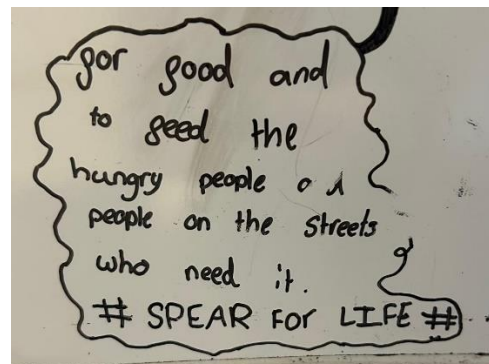 for food and
to feed the
hungry people
people on the streets
who need it.
# SPEAR FOR LIFE #